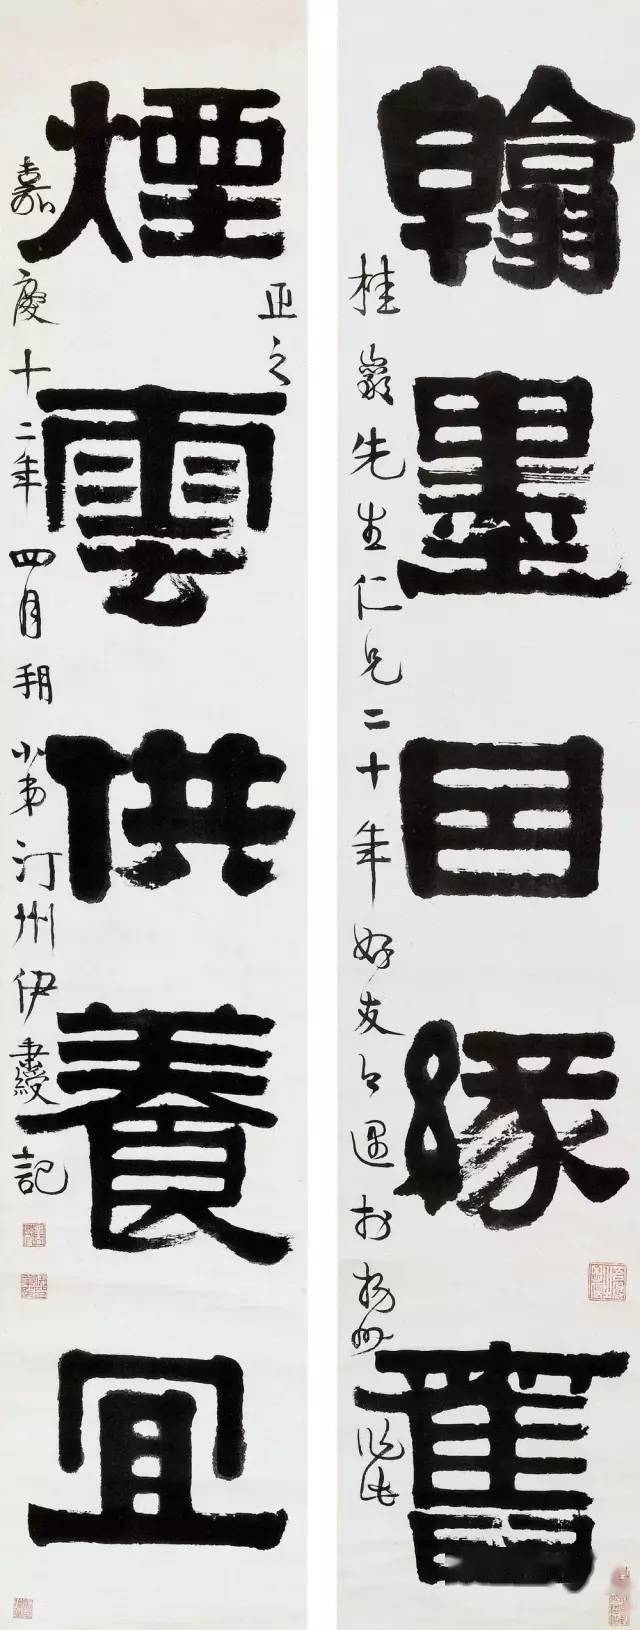 翰墨囙緣舊
桂巖先生仁兄二十年好友今遇於揚州
正之
煙雲供養宜
嘉慶十二年四月朔小弟汀州伊秉綬記